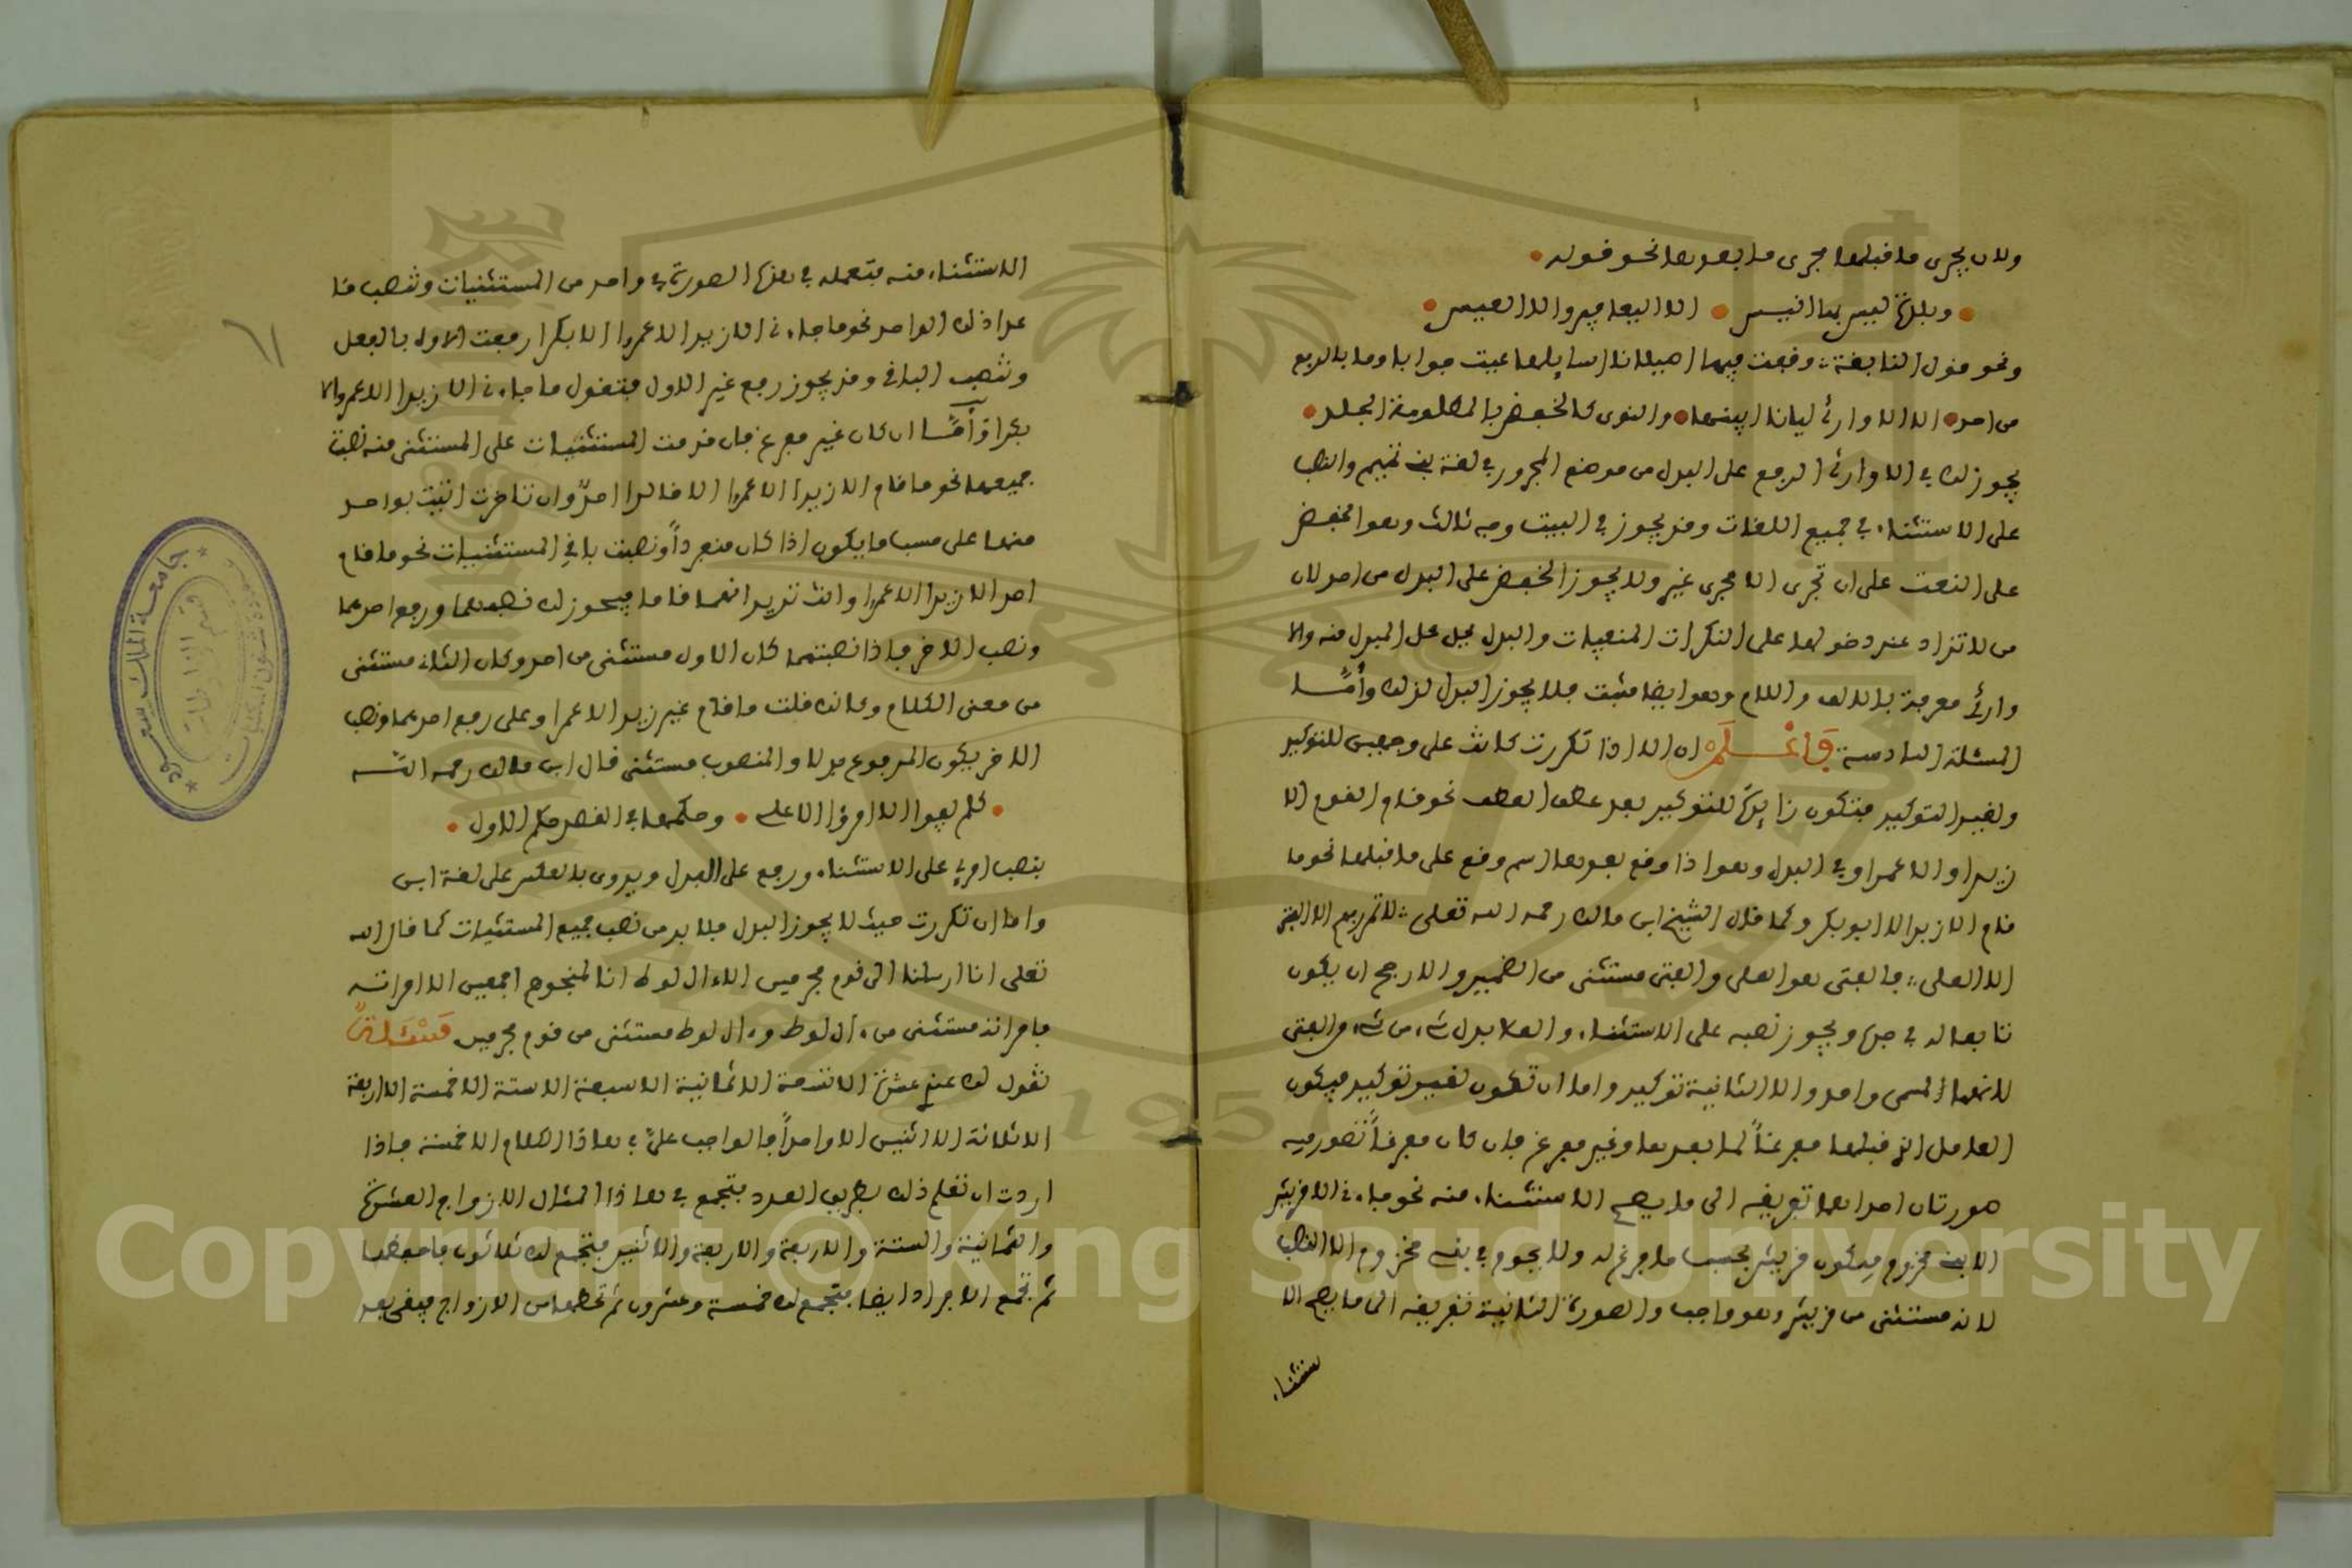 ولان يجرى ما قبلها مجرى ما بعدها نحو قوله
وبلدة ليس بها انيس الا اليعافير والا العيس
ونحو قول النابغة وقفت فيها اصيلانا اسايلها عيت جوابا وما بالربع
من احد الا الاوارى ليانا ابينها والنوى كالحوض بالمظلومة الجلد
يجوز لك في الاوارى الرفع على البدل من موضع المجرور في لغة بنى تميم والنصب
على الاستثناء في جميع اللغات وقد يجوز في البيت وجه ثالث وهو الخفض
على النعت على ان تجرى الا مجرى غير ولا يجوز الخفض على البدل من احد لان
من لا تزاد عند دخولها على النكرات المنفيات والبدل يحل محل المبدل منه والا
وارى معرفة بالالف واللام وهو ايضا مثبت فلا يجوز البدل لذلك وأمّا
المسئلة السادسة فاعلم ان الا اذا تكررت كانت على وجهين للتوكيد
ولغير التوكيد فتكون زايدة للتوكيد بعد عطف العطف نحو قام القوم الا
زيدا والا عمرا وفي البدل وهو اذا وقع بعدها اسم وقع على ما قبلها نحو ما
قام الا زيد الا ابو بكر وكما قال الشيخ ابن مالك رحمه الله تعلى لا تمرر بهم الا الفتى
الا العلى فالفتى هو العلى والفتى مستثنى من الضمير والارجح ان يكون
تابعا له في جره ويجوز نصبه على الاستثناء والعلا بدل شيء من شيء والفتى
لانهما لمسمى واحد والا الثانية توكيد واما ان تكون لغير توكيد فيكون
العامل الذي قبلها مفرغاً لما بعدها وغير مفرغ فان كان مفرغاً تصور فيه
صورتان احداهما تفريغه الى ما يصح الاستثناء منه نحو جاءنى الا قريش
الا بنى مخزوم فيكون قريش بحسب ما فرغ له ولا يجوز في بنى مخزوم الا النصب
لانه مستثنى من قريش وهو واجب والصورة الثانية تفريغه الى ما يصح الا
ستثناء
الاستثناء منه فتعمله في هذه الصورة في واحد من المستثنيات وتنصب ما
عدا ذلك الواحد نحو ما جاءنى الا زيد الا عمرا الا بكرا رفعت الاول بالفعل
ونصبت الباقى وقد يجوز رفع غير الاول فتقول ما جاءنى الا زيدا الا عمرو الا
بكرا وأمّا ان كان غير مفرغ فان قدمت المستثنيات على المستثنى منه نصبت
جميعها نحو ما قام الا زيدا الا عمرا الا خالدا احدٌ وان تاخرت اتيت بواحد
منها على حسب ما يكون اذا كان منفرداً ونصبت باقي المستثنيات نحو ما قام
احد الا زيدا الا عمرا وانت تريد انهما قاما فيجوز لك نصبهما ورفع احدهما
ونصب الاخر فاذا نصبتهما كان الاول مستثنى من احد وكان الثانى مستثنى
من معنى الكلام وكانك قلت ما قام غير زيد الا عمرا وعلى رفع احدهما ونصب
الاخر يكون المرفوع بدلا والمنصوب مستثنى قال ابن مالك رحمه الله
كلم يفوا الا امرؤ الا على وحكمها في القصد حكم الاول
بنصب امرئ على الاستثناء ورفع على البدل ويروى بالعكس على لغة ابن
واما ان تكررت حيث لا يجوز البدل فلا بد من نصب جميع المستثنيات كما قال الله
تعلى انا ارسلنا الى قوم مجرمين الا ءال لوط انا لمنجوهم اجمعين الا امراته
فامراته مستثنى من ءال لوط وءال لوط مستثنى من قوم مجرمين مسئلة
تقول لك عندي عشرة الا تسعة الا ثمانية الا سبعة الا ستة الا خمسة الا اربعة
الا ثلاثة الا اثنين الا واحداً فالواجب علىَّ في هاذا الكلام الا خمسة فاذا
اردت ان تعلم ذلك بطريق العدد فتجمع في هاذا المثال الازواج العشرة
والثمانية والستة والاربعة والاثنين فتجتمع لك ثلاثون فاحفظها
ثم تجمع الافراد ايضا فتجمع لك خمسة وعشرون ثم تحطها من الازواج فيبقى بعد
٦١
جامعة الملك سعود
Copyright © King Saud University
1957